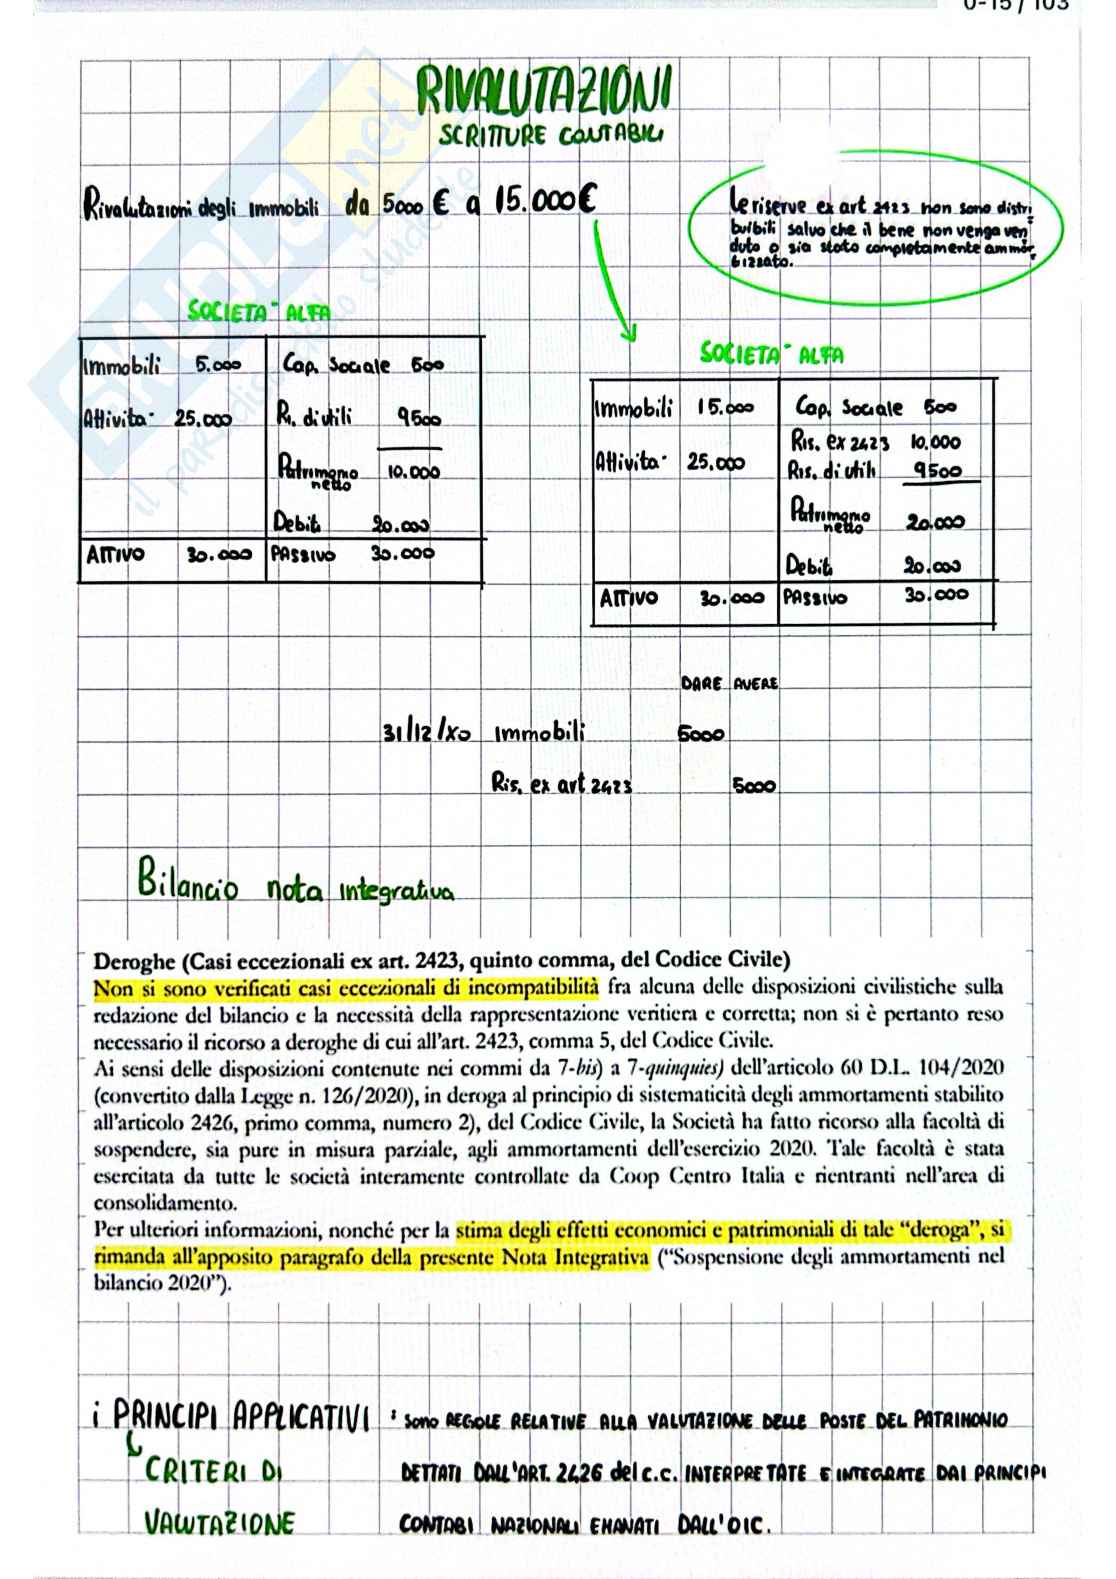 0-15 / 103
RIVALUTAZIONI
SCRITTURE CONTABILI
Rivalutazioni degli immobili da 5000 € a 15.000€
Le riserve ex art 2423 non sono distri
buibili salvo che il bene non venga ven
duto o sia stato completamente ammor
tizzato.
SOCIETA' ALFA
Immobili 5.000 Cap. Sociale 500
Attivita' 25.000 Ri. di utili 9500
Patrimonio netto 10.000
Debiti 20.000
ATTIVO 30.000 PASSIVO 30.000
SOCIETA' ALFA
Immobili 15.000 Cap. Sociale 500
Ris. ex 2423 10.000
Attivita' 25.000 Ris. di utili 9500
Patrimonio netto 20.000
Debiti 20.000
ATTIVO 30.000 PASSIVO 30.000
DARE AVERE
31/12/X0 Immobili 5000
Ris. ex art 2423 5000
Bilancio nota integrativa
Deroghe (Casi eccezionali ex art. 2423, quinto comma, del Codice Civile)
Non si sono verificati casi eccezionali di incompatibilità fra alcuna delle disposizioni civilistiche sulla
redazione del bilancio e la necessità della rappresentazione veritiera e corretta; non si è pertanto reso
necessario il ricorso a deroghe di cui all'art. 2423, comma 5, del Codice Civile.
Ai sensi delle disposizioni contenute nei commi da 7-bis) a 7-quinquies) dell'articolo 60 D.L. 104/2020
(convertito dalla Legge n. 126/2020), in deroga al principio di sistematicità degli ammortamenti stabilito
all'articolo 2426, primo comma, numero 2), del Codice Civile, la Società ha fatto ricorso alla facoltà di
sospendere, sia pure in misura parziale, agli ammortamenti dell'esercizio 2020. Tale facoltà è stata
esercitata da tutte le società interamente controllate da Coop Centro Italia e rientranti nell'area di
consolidamento.
Per ulteriori informazioni, nonché per la stima degli effetti economici e patrimoniali di tale "deroga", si
rimanda all'apposito paragrafo della presente Nota Integrativa ("Sospensione degli ammortamenti nel
bilancio 2020").
i PRINCIPI APPLICATIVI : sono REGOLE RELATIVE ALLA VALUTAZIONE DELLE POSTE DEL PATRIMONIO
CRITERI DI DETTATI DALL'ART. 2426 del c.c. INTERPRETATE E INTEGRATE DAI PRINCIPI
VALUTAZIONE CONTABI NAZIONALI EMANATI DALL'OIC.